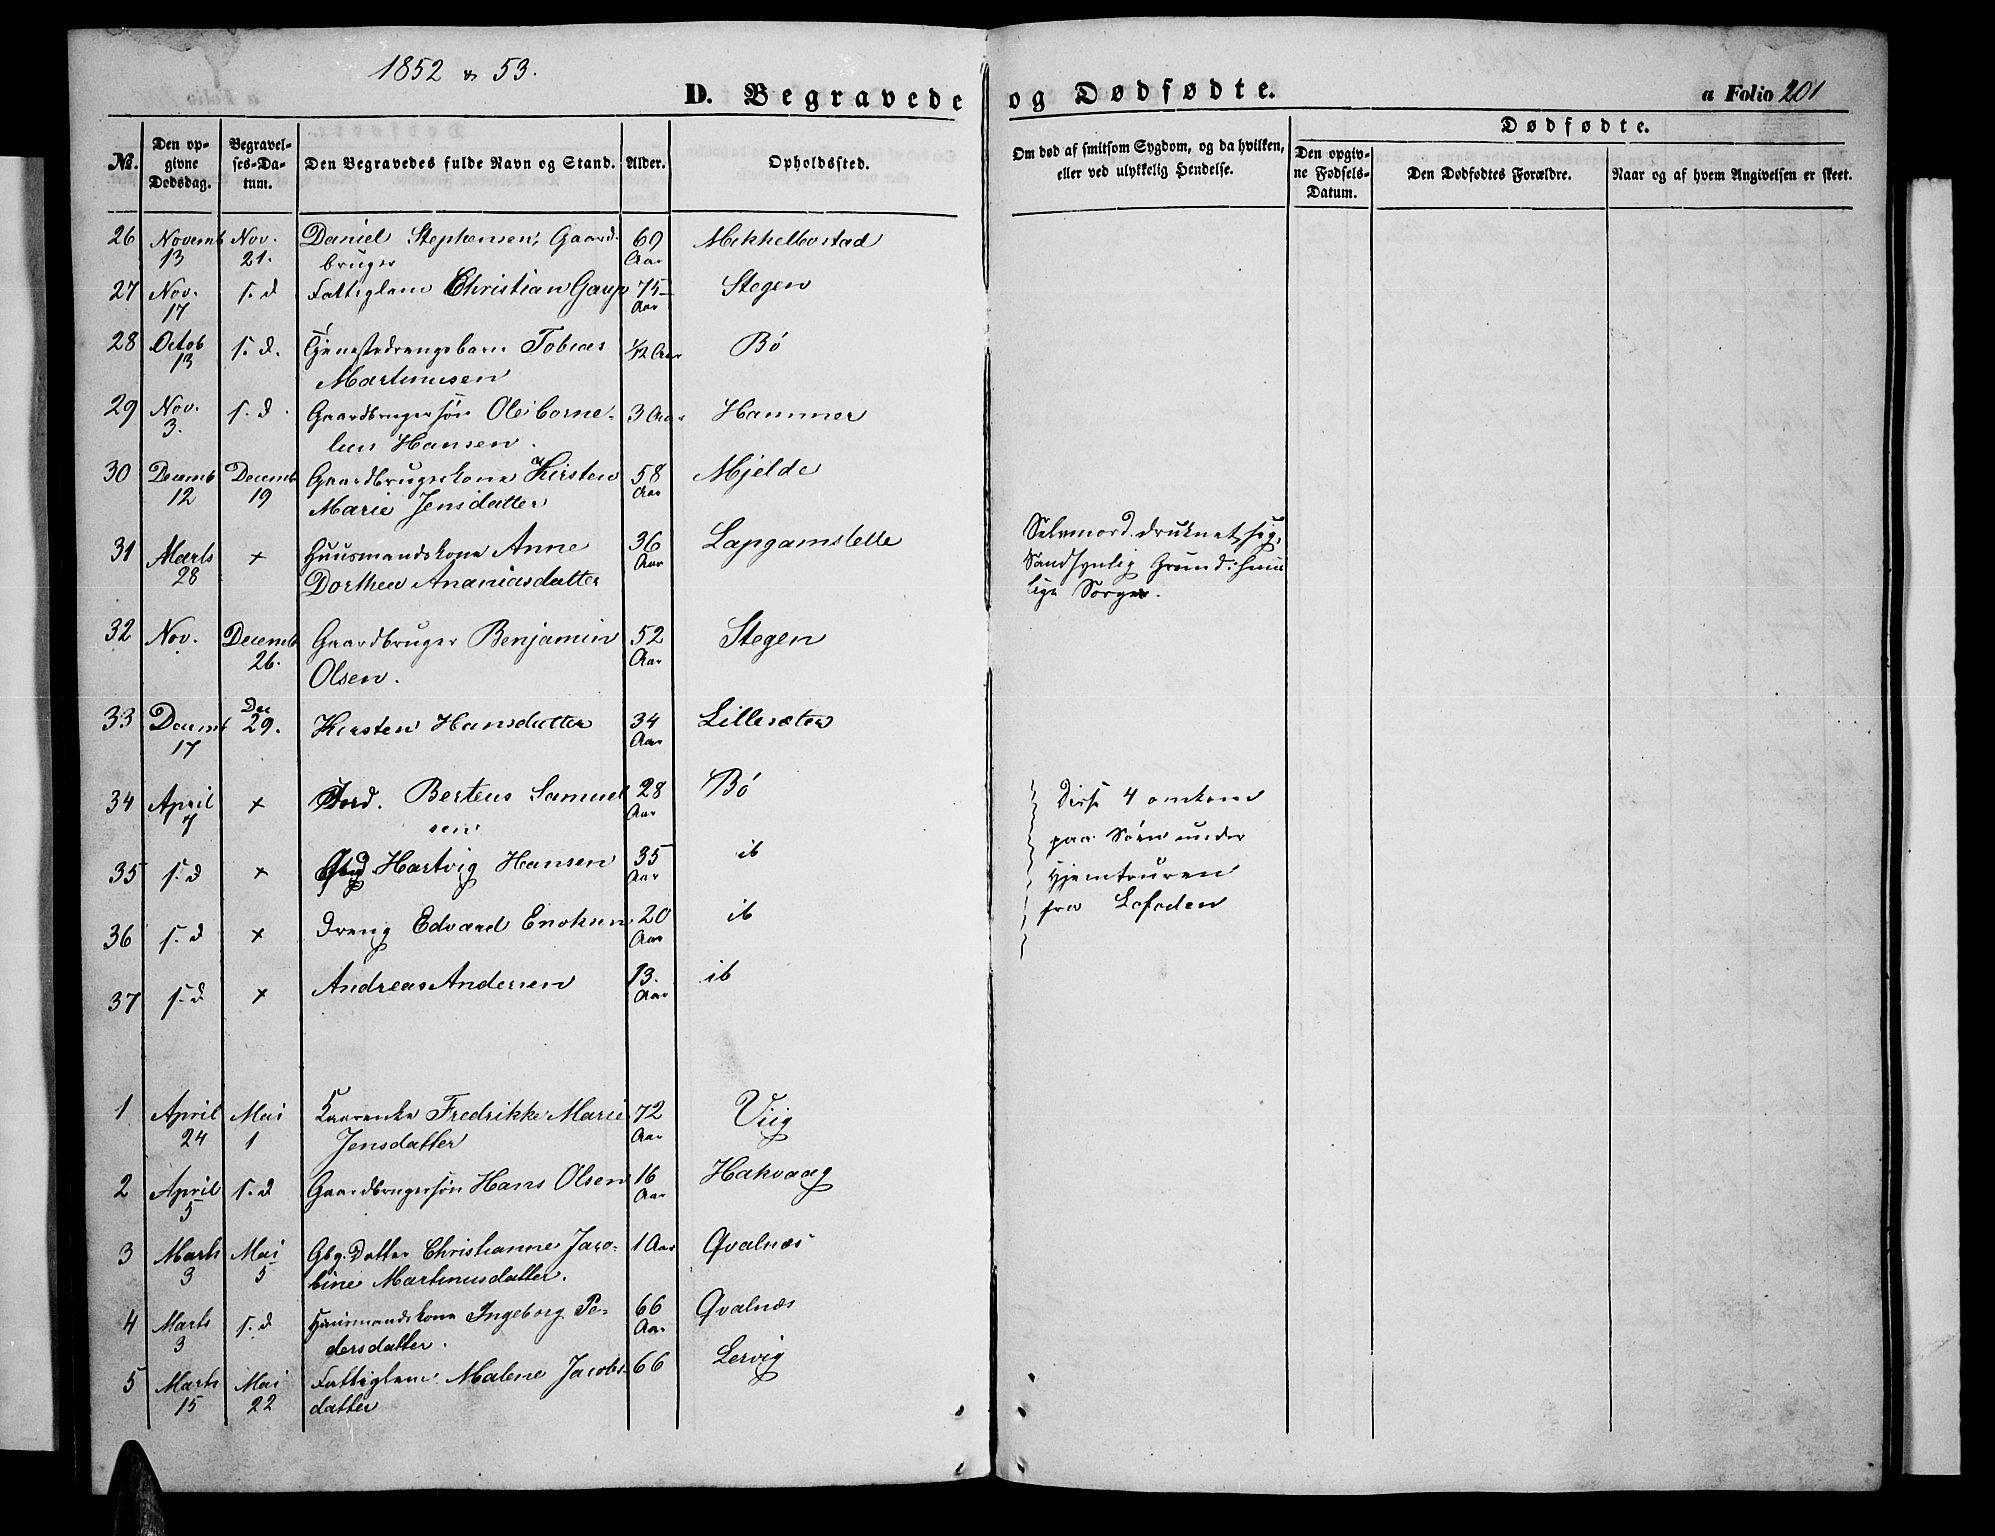 1852 & 53.
D. Begravede og Dødfødte.
a Folio 201
No. Den opgivne Dødsdag. Begravelses-Datum. Den Begravedes fulde Navn og Stand. Alder. Opholdssted. Om død af smitsom Sygdom, og da hvilken, eller ved ulykkelig Hendelse. Dødfødte. Den opgivne Fødsels-Datum. Den Dødfødtes Forældre. Naar og af hvem Angivelsen er skeet.
26 Novemb Nov. Daniel Stephensen, Gaard- 69 Mekkelbostad
13 21. bruger Aar
27 Nov. s. d Fattiglem Christian Gaup 75 Stegen
17 Aar
28 Octob s. d. Tjenestedrengsbarn Tobias 1/12 Aar Bö
13 Martinusen
29 Nov. s. d. Gaardbrugersön Ole Corne- 3 Aar Hammer
3. lius Hansen.
30 Decemb Decemb Gaardbrugerkone Kirsten 58 Mjelde
12 19 Marie Jensdatter Aar
31 Marts + Huusmandskone Anne 36 Lapgamslette Selvmord. druknet sig,
28 Dorthea Ananiasdatter Aar Sandsynlig Grund: huus
lige Sorger.
32 Nov. Decemb Gaardbruger Benjamin 52 Stegen
26. Olsen. Aar
33 Decemb Dec 29. Kirsten Hansdatter 34 Lillesæter
17 Aar
34 April + Berteus Samuel 28 Bö Disse 4 omkom
7 sen Aar paa Söen under
35 s. d + Hartvig Hansen 35 ib Hjemtouren
Aar
36 s. d + Dreng Edvard Enoksen 20 ib fra Lofoden
Aar
37 s. d + Andreas Andersen 13. ib
Aar
1 April Mai Fredrikke Marie 72 Viig
24 1 Jensdatter Aar
2 April s. d Gaardbrugersön Hans Olsen 16 Hakvaag
5 Aar
3 Marts Mai Gbg. Datter Christianne Jaco- 1 Aar Qvalnæs
3 5 bine Martinusdatter.
4 Marts s. d Huusmandskone Ingeborg Pe- 66 Qvalnæs
3 dersdatter. Aar
5 Marts Mai Fattiglem Malene Jacobs- 66 Lervig
15 22 datter